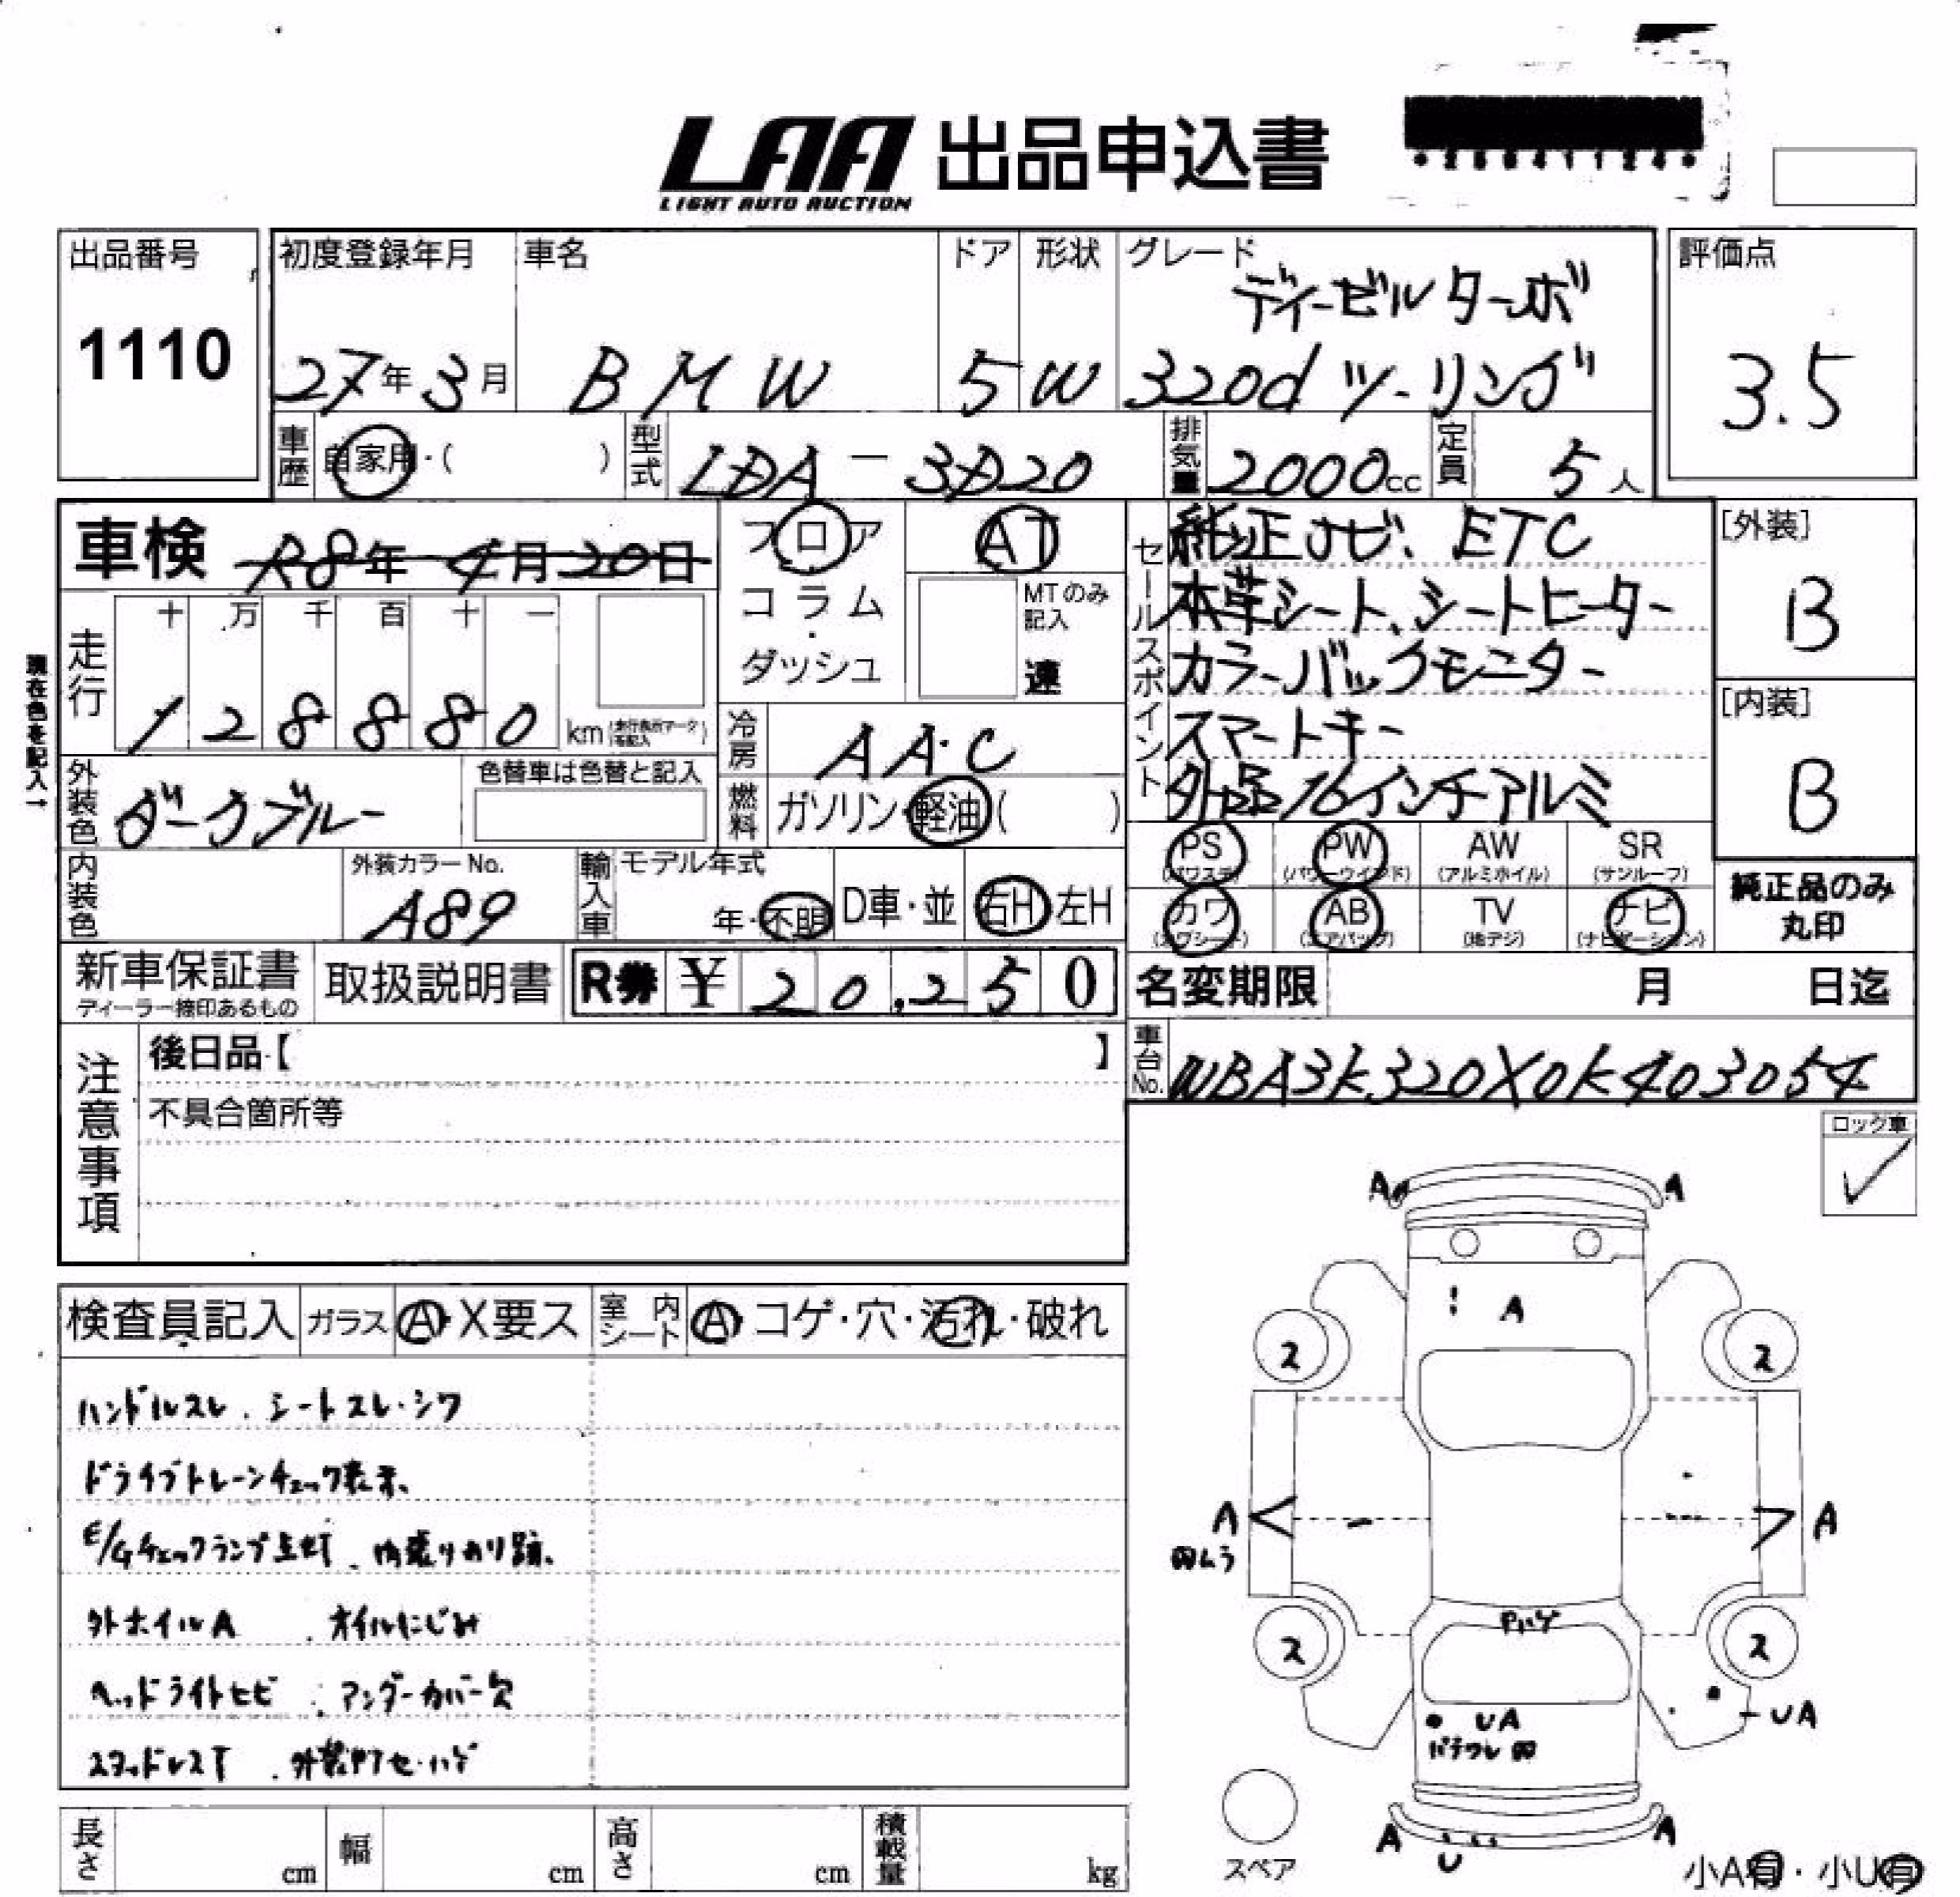 LAA 出品申込書
LIGHT AUTO AUCTION
出品番号 初度登録年月 車名 ドア 形状 グレード 評価点
ディーゼルターボ
1110 27年3月 BMW 5 W 320d ツーリング 3.5
車歴 自家用・( ) 型式 LDA-3D20 排気量 2000cc 定員 5人
車検 R8年4月20日 フロア AT セールスポイント 純正ナビ、ETC [外装]
コラム・ MTのみ記入 本革シート、シートヒーター B
現在色を記入→ 走行 十 万 千 百 十 一 ダッシュ 速 カラーバックモニター [内装]
1 2 8 8 8 0 km 冷房 AAC スマートキー
外装色 ダークブルー 色替車は色替と記入 燃料 ガソリン・軽油( ) 外品16インチアルミ B
PS (パワステ) PW (パワーウインド) AW (アルミホイル) SR (サンルーフ)
内装色 外装カラーNo. A89 輸入車 モデル年式 年・不明 D車・並 右H 左H
カワ (カワシート) AB (エアバッグ) TV (地デジ) ナビ (ナビゲーション) 純正品のみ丸印
新車保証書 ディーラー捺印あるもの 取扱説明書 R券 ¥ 20,250 名変期限 月 日迄
注意事項 後日品【 】 車台No. WBA3K320X0K403054
不具合箇所等
ロック車 ✓
A A
検査員記入 ガラス A・X要ス 室内シート A・コゲ・穴・汚れ・破れ
A
2 2
ハンドルスレ . シートスレ・シワ
ドライブトレーンチェック表示、
E/Gチェックランプ点灯 . 内張りカリ跡、
A A
凹ムラ
外ホイルA . オイルにじみ
Pハゲ
2 2
ヘッドライトヒビ . アンダーカバー欠
UA UA
スタッドレスT . 外装ヤケセ・ハゲ
A U A
長さ cm 幅 cm 高さ cm 積載量 kg
スペア 小A有・小U有